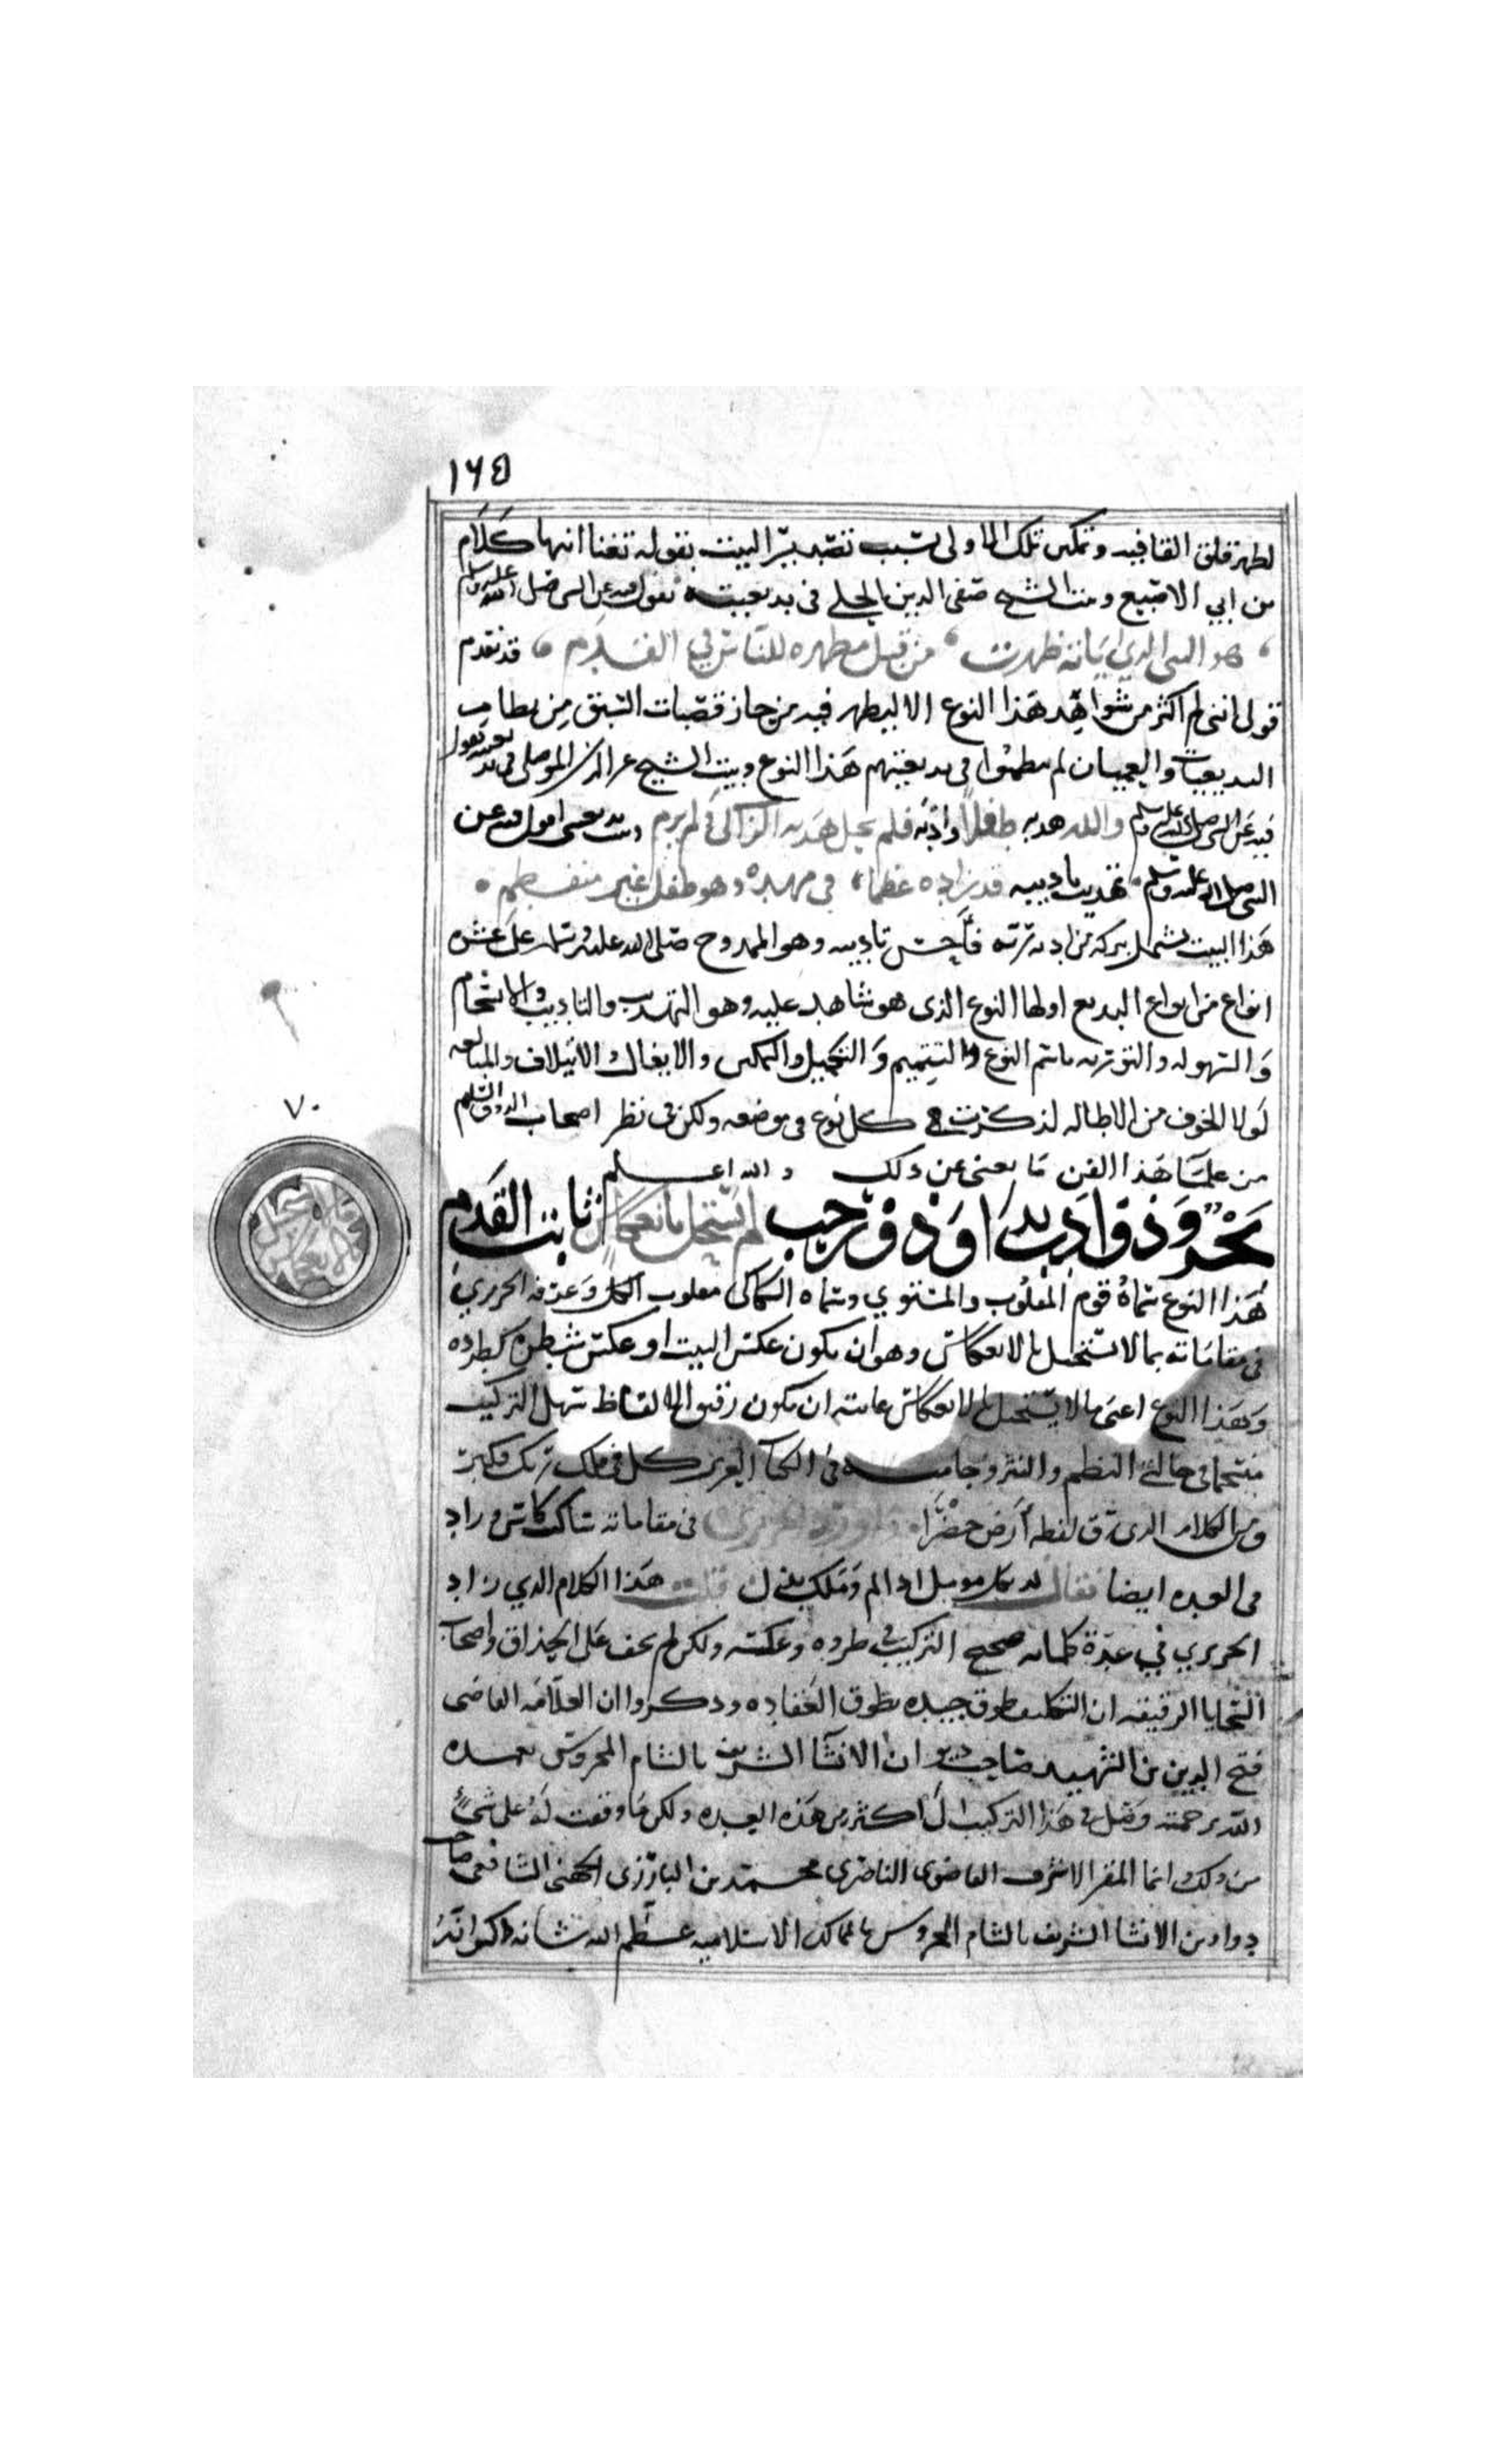 ١٦٥
لظهر قلق القافيه وتمكين تلك الاولى بسبب تصدير البيت بقوله تغنا انتها كلام
بن ابي الاصبع وبيت الشيخ صفي الدين الحلي في بديعيته يقول فيه عن النبي صلى الله عليه وسلم
هو النبي الذي اياته ظهرت من قبل مظهره للناس في القدم قد تقدم
قولي انني لم اكثر من شواهد هذا النوع الا ليظهر فيه من حاز قصبات السبق من نظام
البديعيات والعميان لم ينظموا في بديعيتهم هذا النوع وبيت الشيخ عز الدين الموصلي في بديعيته يقول
فيه عن النبي صلى الله عليه وسلم والله هذبه طفلا وادبه فلم يحل هديه الزاكي ولم يرم وبيت بديعيتي اقول فيه عن
النبي صلى الله عليه وسلم تهذيب تاديبه قد زاده عظما في مهده وهو طفل غير منفطم
هذا البيت يشمل ببركة من ادبه ربه فاحسن تاديبه وهو الممدوح صلى الله عليه وسلم على عشرة
انواع من انواع البديع اولها النوع الذي هو شاهد عليه وهو التهذيب والتاديب والانسجام
والسهوله والتوريه باسم النوع والتتميم والتكميل والتمكين والايغال والائتلاف والمبالغه
لولا الخوف من الاطاله لذكرت كل نوع في موضعه ولكن في نظر اصحاب الذوق السليم
من علماء هذا الفن ما يغني عن ذلك والله اعلم
٧٠
ما لا يستحيل بالانعكاس
نحر وذو ادب بدا وذو رحب لم يستحل بانعكاس ثابت القدم
هذا النوع سماه قوم المقلوب والمستوي وسماه السكاكي مقلوب الكل وعرفه الحريري
في مقاماته بما لا يستحيل بالانعكاس وهو ان يكون عكس البيت او عكس شطره كطرده
وهذا النوع اعني ما لا يستحيل بالانعكاس غايته ان يكون رقيق الالفاظ سهل التركيب
منسجما في حالتي النظم والنثر وجا منه في الكتاب العزيز كل في فلك ربك فكبر
ومن الكلام الذي رق لفظه ارض خضرا واورد الحريري في مقاماته ساكب كاس وزاد
في العده ايضا فقال لذ بكل مومل اذا لم وملك بذل قلت هذا الكلام الذي زاد
الحريري في عدة كلماته صحيح التركيب في طرده وعكسه ولكن لم يخف على الحذاق واصحاب
السجايا الرقيقه ان التكليف طوق جيده بطوق العقاده وذكروا ان العلامه القاضي
فتح الدين بن الشهيد صاحب ديوان الانشا الشريف بالشام المحروس تغمده
الله برحمته وصل في هذا التركيب الى اكثر من هذه العده ولكن ما وقفت له على شيء
من ذلك انما المقر الاشرف القاضوي الناصري محمد بن البارزي الجهني الشافعي صاحب
دواوين الانشا الشريف بالشام المحروس بالممالك الاسلاميه عظم الله شانه ذكر انه